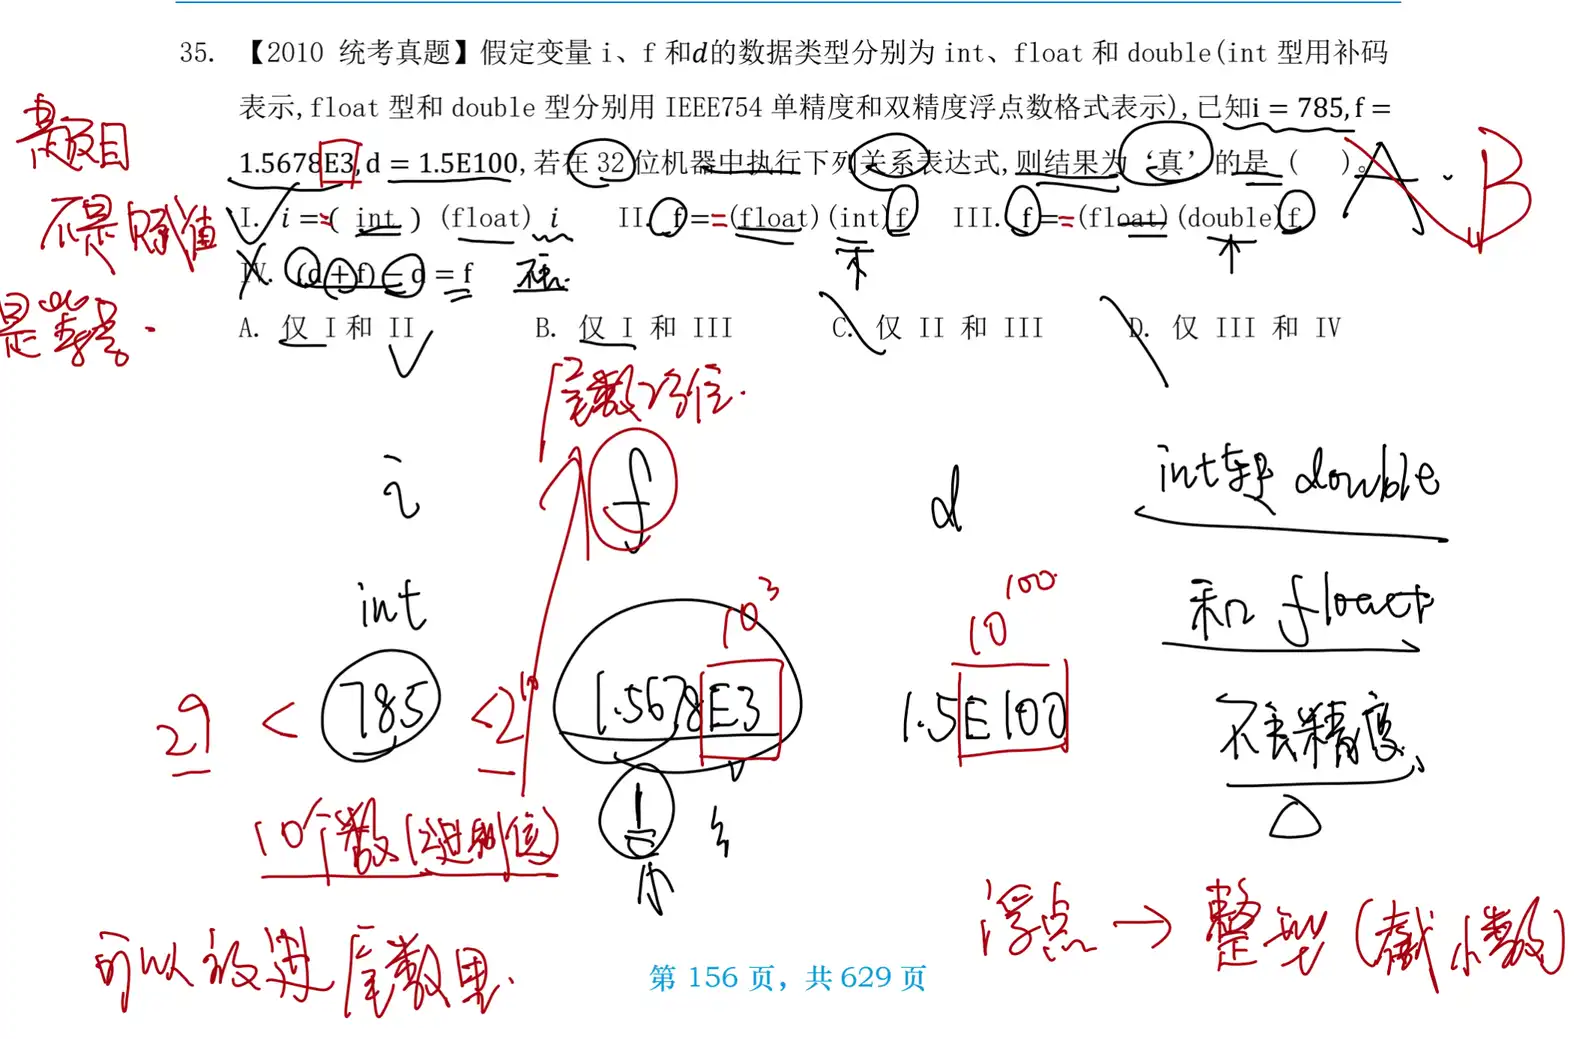 35. 【2010 统考真题】假定变量 i、f 和d的数据类型分别为 int、float 和 double(int 型用补码
表示,float 型和 double 型分别用 IEEE754 单精度和双精度浮点数格式表示),已知i = 785,f =
1.5678E3,d = 1.5E100,若在 32 位机器中执行下列关系表达式,则结果为 ‘真’ 的是 (  )。
A · B
I. i == ( int ) (float) i II. f == (float)(int)f III. f == (float)(double)f
IV. (d + f) − d = f
A. 仅 I 和 II B. 仅 I 和 III C. 仅 II 和 III D. 仅 III 和 IV
不是赋值
是等号.
尾数23位.
i f d
int转 double
int
10³
10¹⁰⁰
和 float
2⁹ < 785 < 2¹⁰ 1.5678E3 1.5E100
不丢精度
10个数(2进制位)
浮点 → 整型 (截小数)
可以放进尾数里.
第 156 页，共 629 页